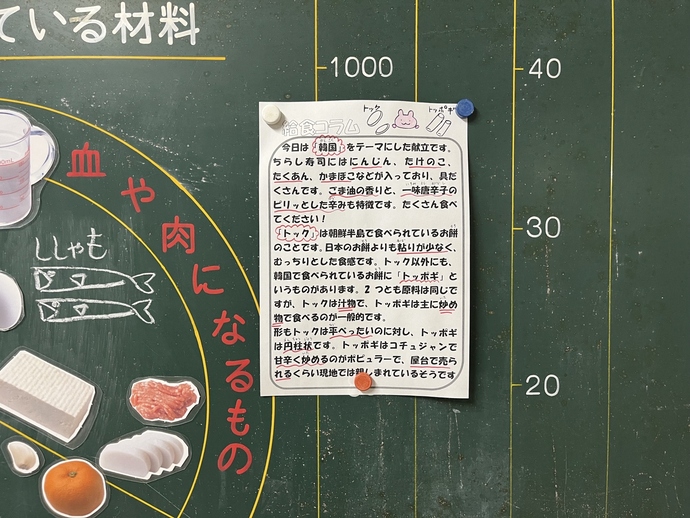 ている材料
1000
40
30
20
血や肉になるもの
ししゃも
トック
トッポギ
給食コラム
今日は「韓国」をテーマにした献立です。
ちらし寿司にはにんじん、たけのこ、
たくあん、かまぼこなどが入っており、具だ
くさんです。ごま油の香りと、一味唐辛子の
ピリッとした辛みも特徴です。たくさん食べ
てください！
「トック」は朝鮮半島で食べられているお餅
のことです。日本のお餅よりも粘りが少なく、
むっちりとした食感です。トック以外にも、
韓国で食べられているお餅に「トッポギ」と
いうものがあります。2つとも原料は同じで
すが、トックは汁物で、トッポギは主に炒め
物で食べるのが一般的です。
形もトックは平べったいのに対し、トッポギ
は円柱状です。トッポギはコチュジャンで
甘辛く炒めるのがポピュラーで、屋台で売ら
れるくらい現地では親しまれているそうです